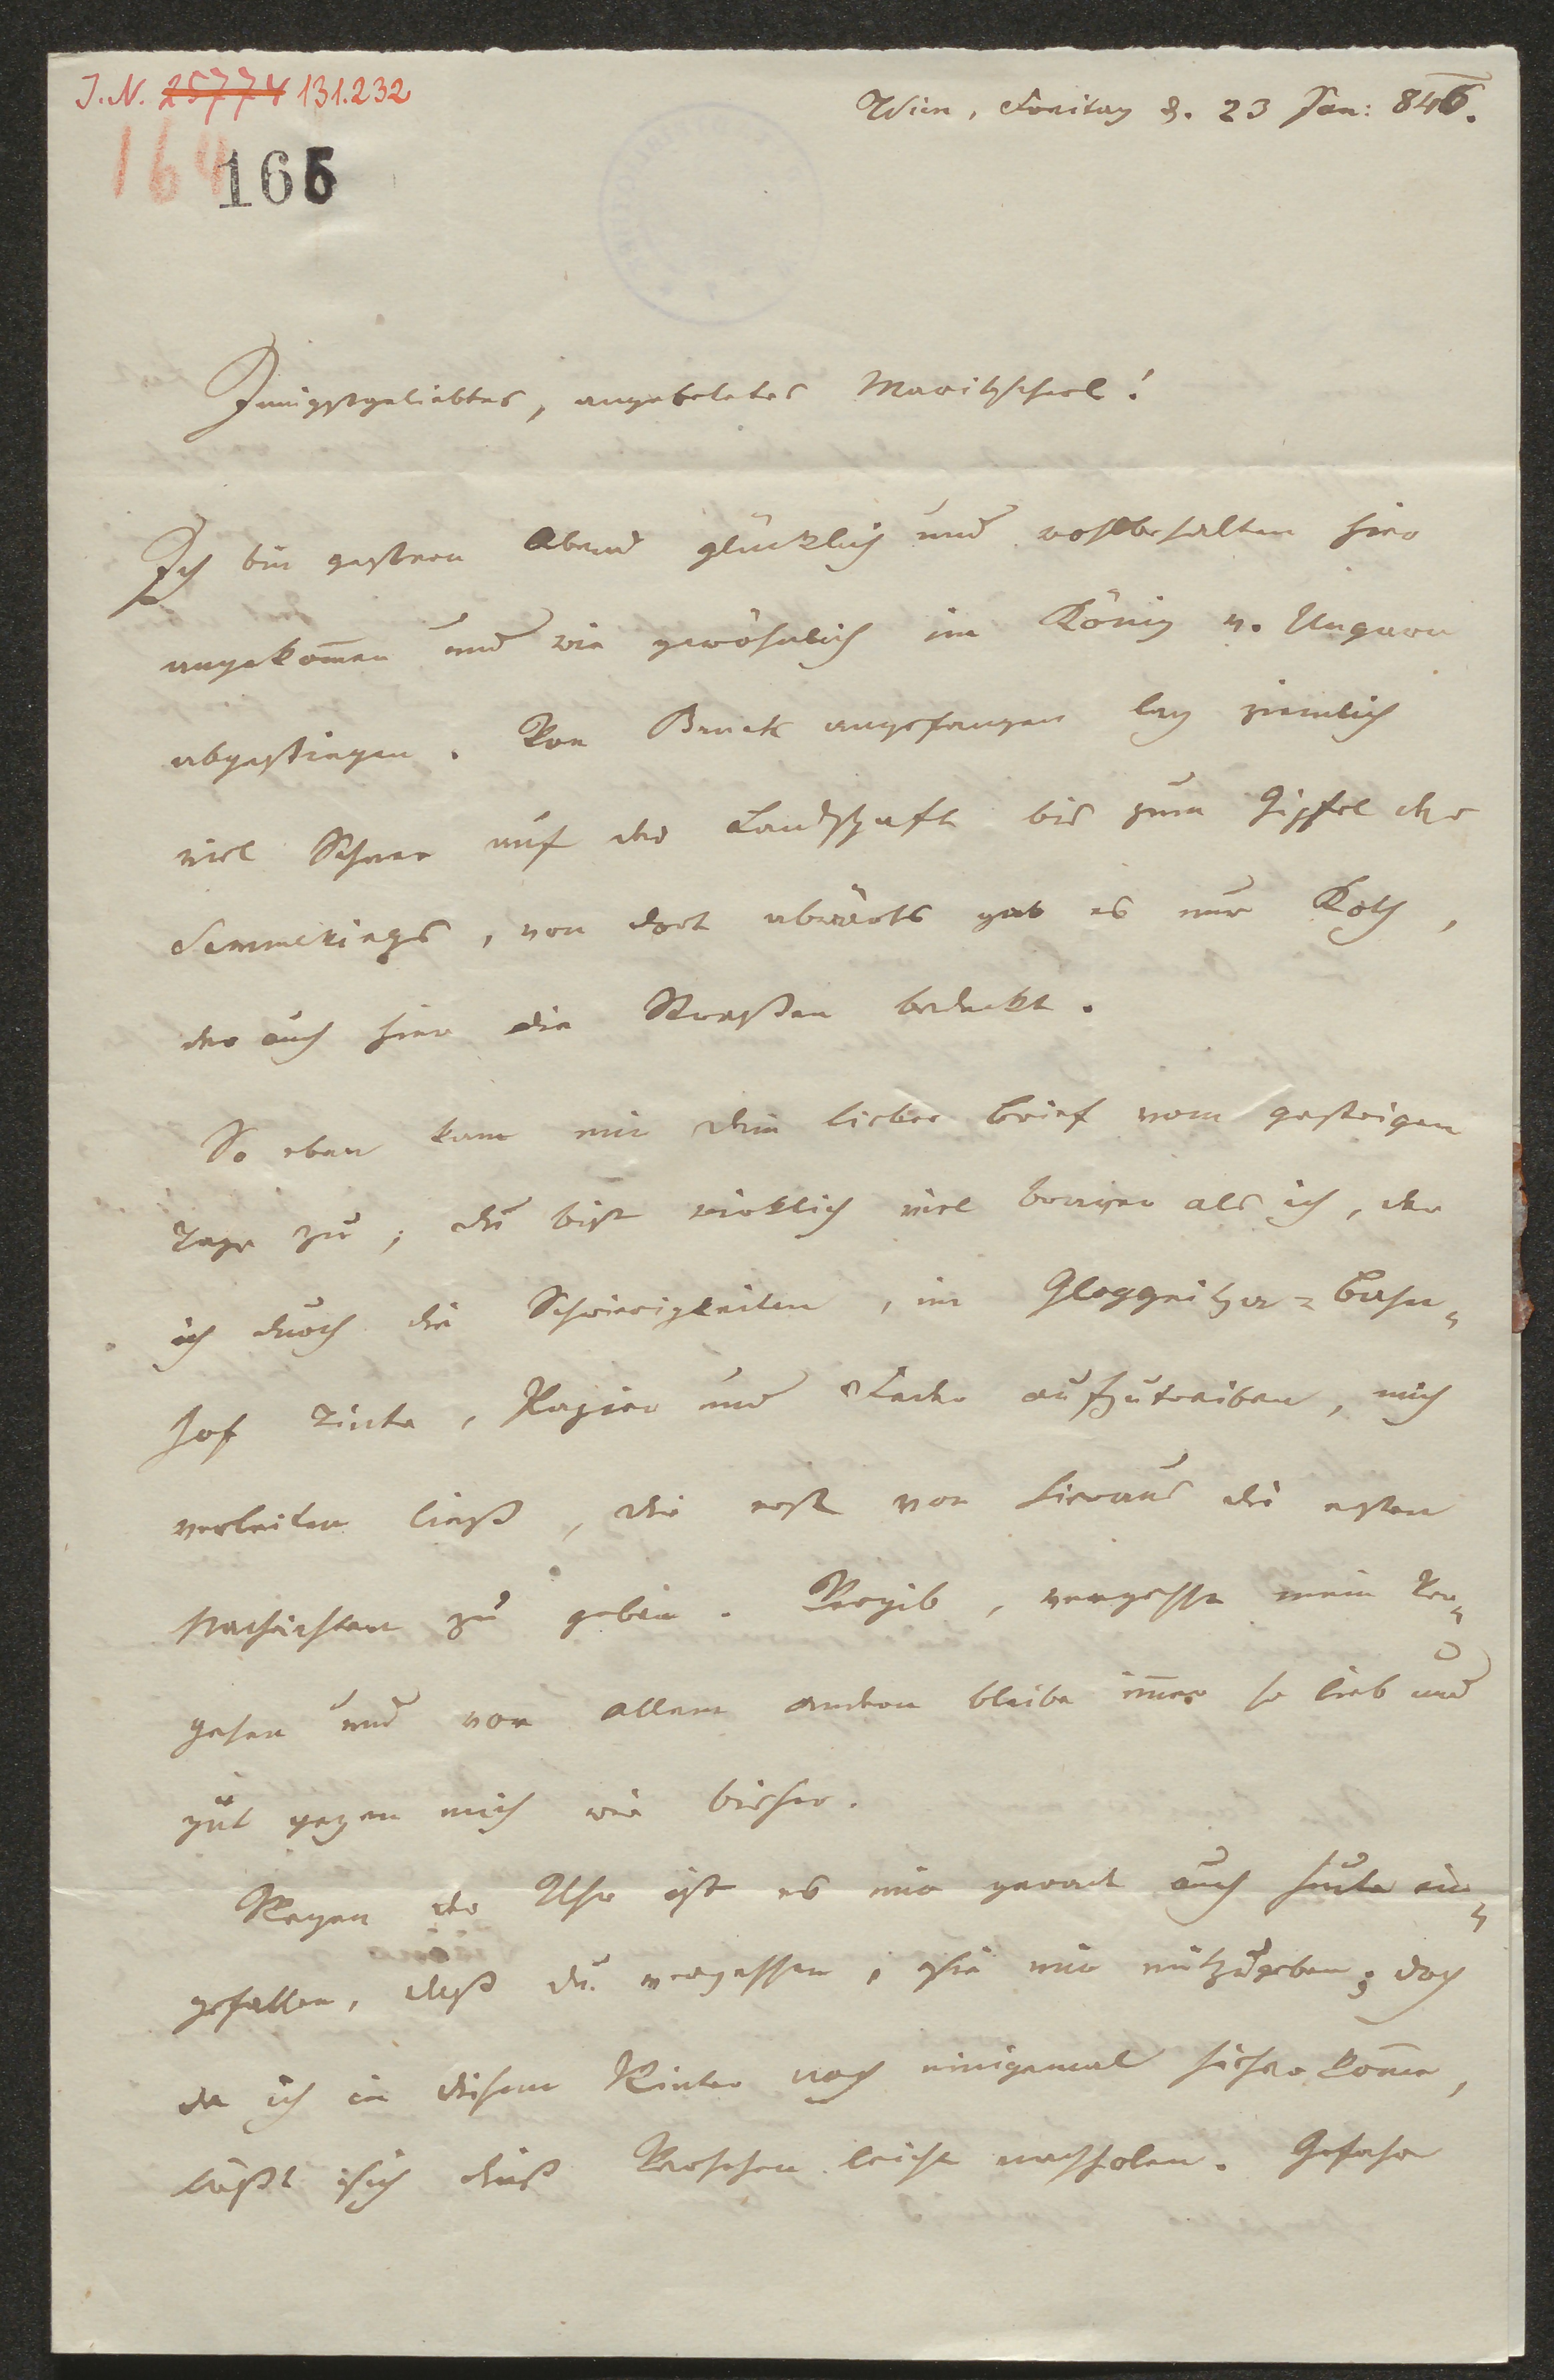 J. N. 25774 131.232
164 166
Wien, Freitag d. 23 Jan: 846.
Innigstgeliebtes, angebetetes Maritscherl!
Ich bin gestern Abend glücklich und wohlbehalten hier
angekom̅en und wie gewöhnlich im König v. Ungarn
abgestiegen. Von Bruck angefangen lag ziemlich
viel Schnee auf der Landschaft bis zum Gipfel des
Semmerings, von dort abwärts gab es nur Koth,
der auch hier die Straßen bedeckt.
So eben kam mir dein lieber Brief vom gestrigen
Tage zu; du bist wirklich viel braver als ich, der
ich durch die Schwierigkeiten, im Gloggnitzer=Bahn„
hof Tinte, Papier und Feder aufzutreiben, mich
verleiten ließ, dir erst von hieraus die ersten
Nachrichten zu geben. Vergib, vergesse mein Ver„
gehen und vor allem andern bleibe im̅er so lieb und
gut gegen mich wie bisher.
Wegen der Uhr ist es mir gerade auch heute ein„
gefallen, daß du vergessen, sie mir mitzugeben; doch
da ich in diesem Winter noch einigemal hieher kom̅e,
läßt sich dieß Versehen leicht nachholen. Gefahr